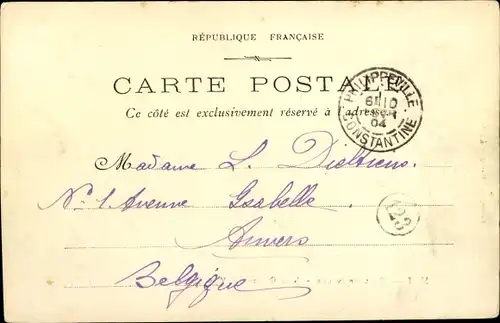 RÉPUBLIQUE FRANÇAISE
CARTE POSTALE
Ce côté est exclusivement réservé à l'adresse
PHILIPPEVILLE
6 10
04
CONSTANTINE
Madame L. Dieltiens
N° 1 Avenue Isabelle
123
Anvers
Belgique